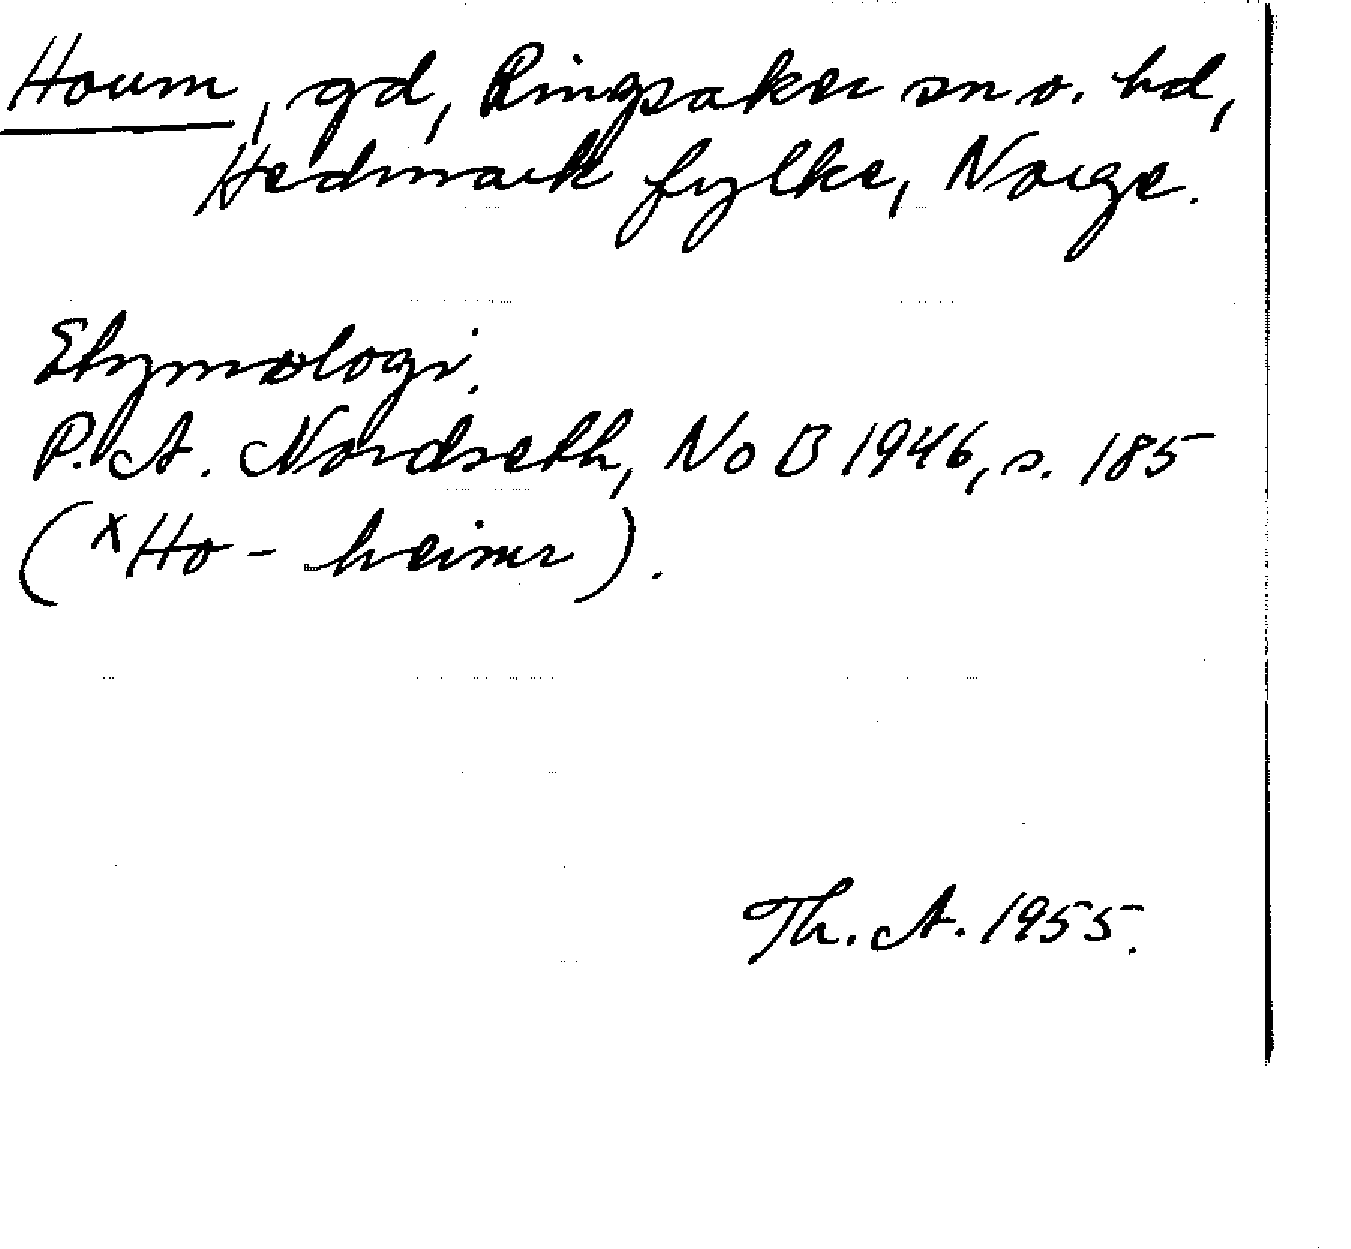 Houm, gd, Ringsaker sn o. hd,
Hedmark fylke, Norge.
Etymologi.
P. A. Nordseth, NoB 1946, s. 185
(ˣHó-heimr).
Th. A. 1955.